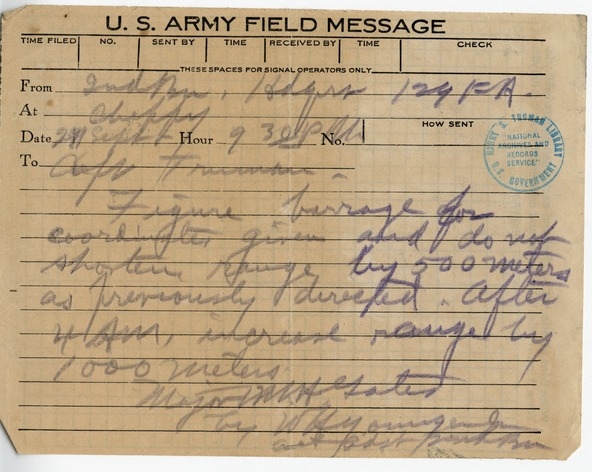 U. S. ARMY FIELD MESSAGE
TIME FILED NO. SENT BY TIME RECEIVED BY TIME CHECK
THESE SPACES FOR SIGNAL OPERATORS ONLY
From 2nd Bn, Hdqrs 129 F.A.
At Cheppy
Date 29 Sept Hour 9 30 P.M. No. HOW SENT
To Capt Truman.
Figure barrage for
coordinates given and do not
shorten range by 500 meters
as previously directed. After
4 AM, increase range by
1000 meters
Major Gates
by W H Younger
2nd Bn
HARRY S. TRUMAN LIBRARY
"NATIONAL
ARCHIVES AND
RECORDS
SERVICE"
U.S. GOVERNMENT